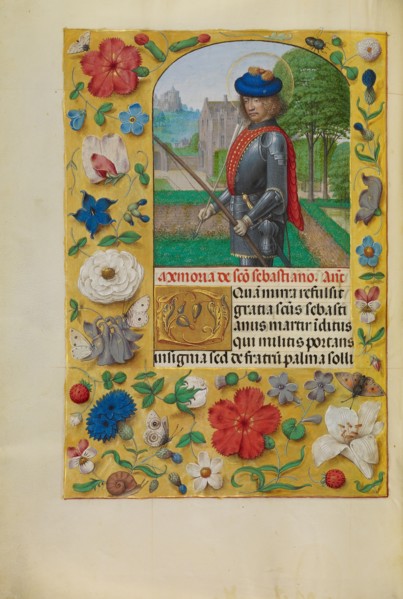 Memoria de sc̃o sebastiano. Añ
O Quã mira refulsit
gratia sc̃us sebasti
anus martir ĩclitus
Qui militis portans
insignia sed de fratrũ palma solli